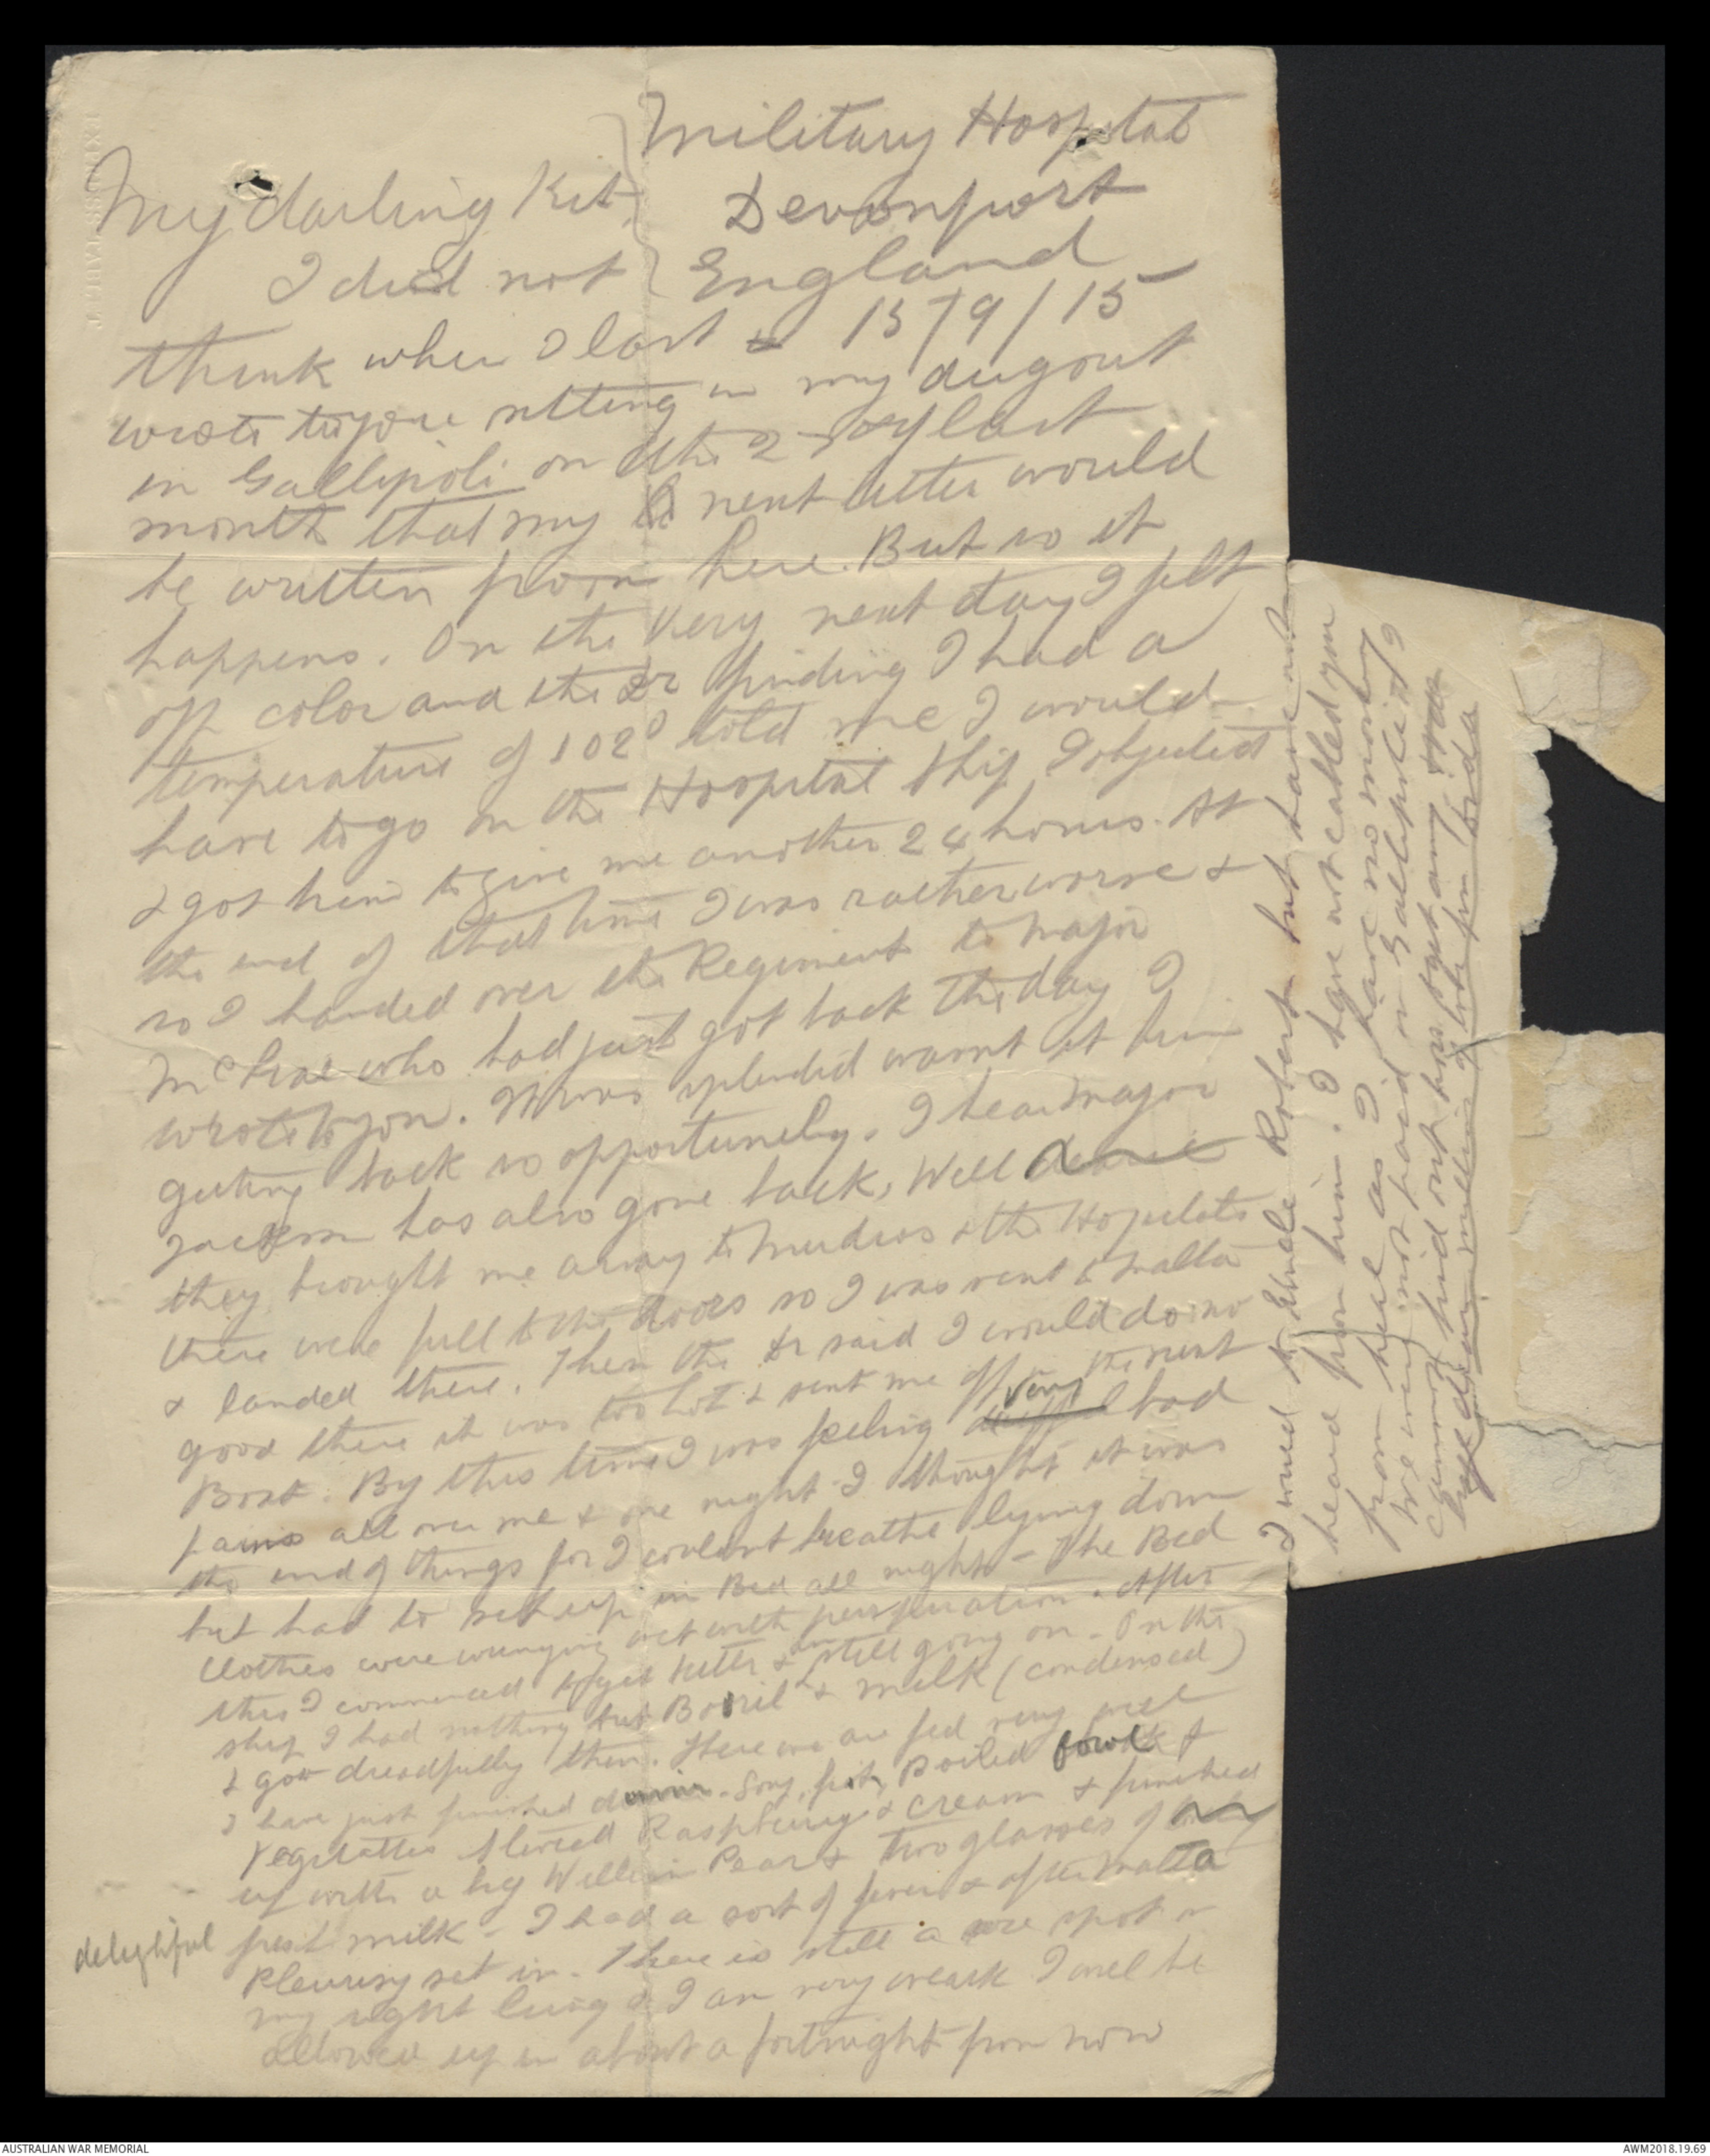 Military Hospital
Devonport
England
13/9/15
My darling Kit
I did not
think when I last
wrote to you sitting in my dugout
in Gallipoli on the 2 of last
month that my next letter would
be written from here. But so it
happens. On the very next day I felt
off color and the Dr finding I had a
temperature of 102° told me I would
have to go on the Hospital Ship I objected
& got him to give me another 24 hours. At
the end of that time I was rather worse &
so I handed over the Regiment to Major
McCrae who had just got back the day I
wrote to you. It was splendid wasnt it him
getting back so opportunely. I hear Major
Jackson has also gone back. Well
they brought me away to Mudros & the Hospitals
there were full to the doors so I was sent to Malta
& landed there. Then the Dr said I would do no
good there it was too hot & sent me off by the next
Boat. By this time I was feeling very bad
pains all over me & one night I thought it was
the end of things for I couldnt breathe lying down
but had to sit up in Bed all night - The Bed
clothes were wringing wet with perspiration. After
this I commenced to get better & am still going on. On the
ship I had nothing but Bovril & milk (condensed)
& got dreadfully thin. Here we are fed very well
I have just finished dinner. Soup, fish, Boiled fowl &
vegetables Stewed Raspberry & cream & finished
up with a big William Pear & two glasses of
delightful fresh milk - I had a sort of fever & after Malta
Pleurisy set in. There is still a sore spot in
my right lung & I am very weak I will be
allowed up in about a fortnight from now
I wired to Uncle Robert but have not
heard from him. I have not cabled you
from here as I have no money
we were not paid in Gallipoli & I
cannot find out how to get any